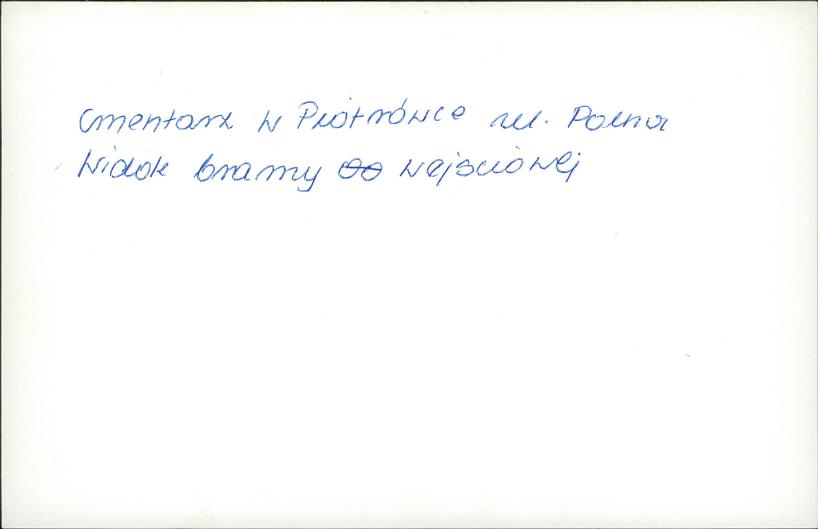 Cmentarz w Piotrówce ul. Polna
Widok bramy wejściowej